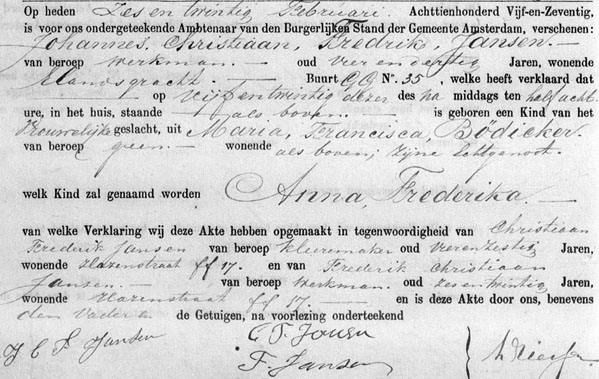 Op heden Zes en twintig Februari Achttienhonderd Vijf-en-Zeventig,
is voor ons ondergeteekende Ambtenaar van den Burgerlijken Stand der Gemeente Amsterdam, verschenen:
Johannes, Christiaan, Fredrik, Jansen.
van beroep Werkman. oud vier en dertig Jaren, wonende
Elandsgracht. Buurt GG No. 35. welke heeft verklaard dat
op vijf en twintig dezer des na middags ten half acht
ure, in het huis, staande als boven. is geboren een Kind van het
Vrouwelijke geslacht, uit Maria, Francisca, Bödicker.
van beroep geen. wonende als boven, zijne Echtgenoot.
welk Kind zal genaamd worden Anna, Frederika.
van welke Verklaring wij deze Akte hebben opgemaakt in tegenwoordigheid van Christiaan
Frederik Jansen van beroep kleermaker oud vier en zestig Jaren,
wonende Hazenstraat ff 17. en van Frederik Christiaan
Jansen. van beroep Werkman. oud zes en twintig Jaren,
wonende Hazenstraat ff 17. en is deze Akte door ons, benevens
den Vader en de Getuigen, na voorlezing onderteekend
J C F Jansen
C F Jansen
F. Jansen